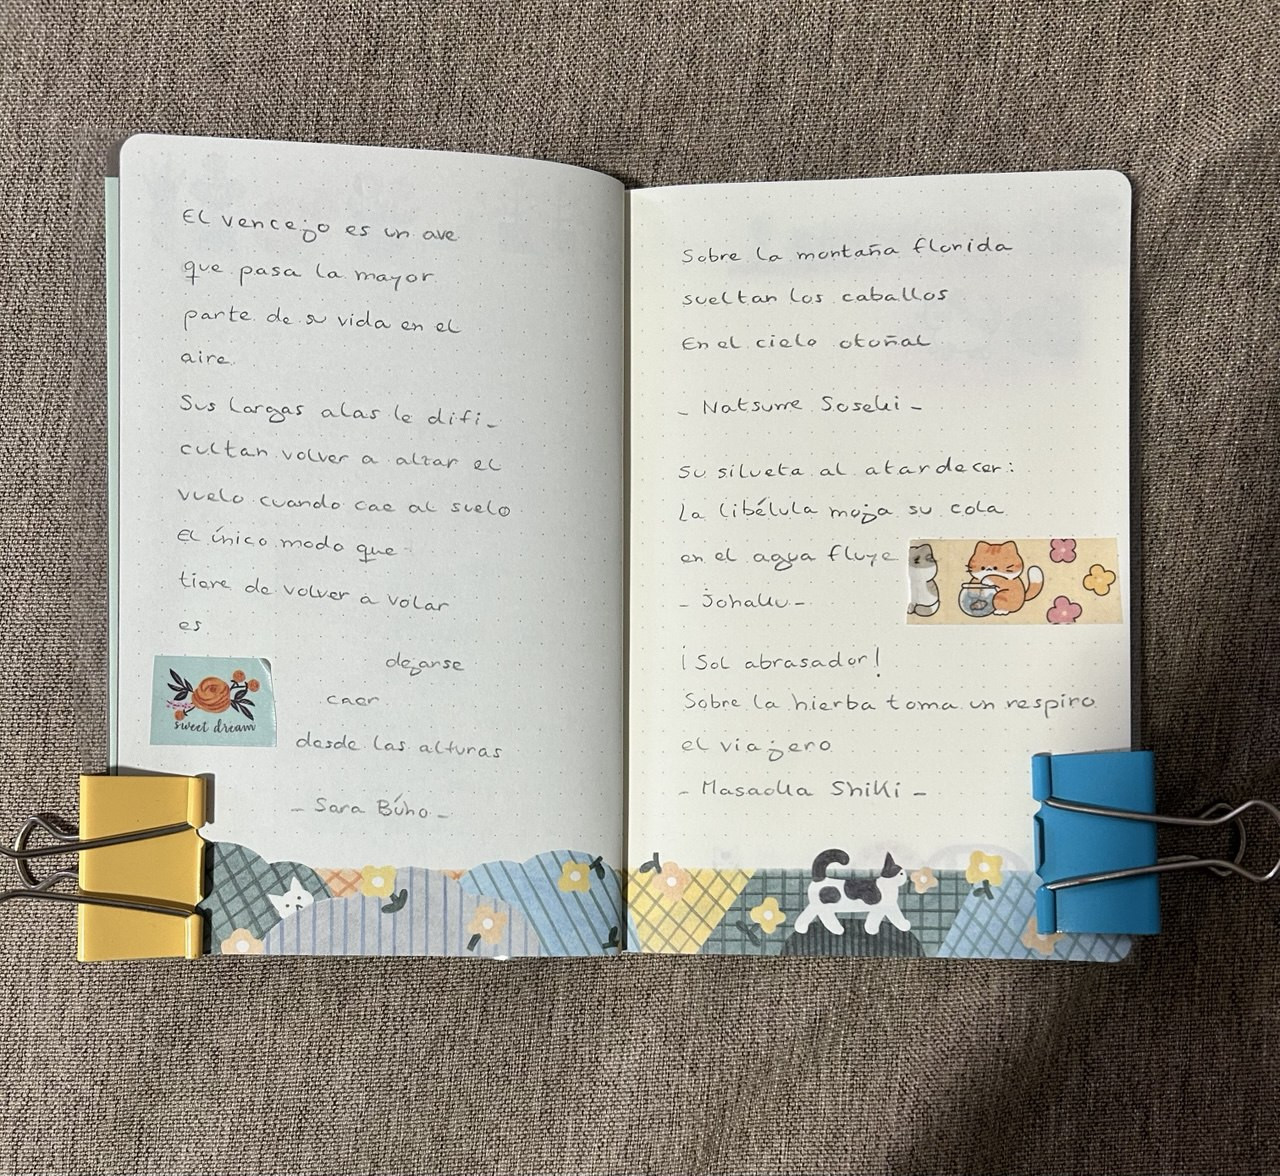 El vencejo es un ave
que pasa la mayor
parte de su vida en el
aire.
Sus largas alas le difi_
cultan volver a alzar el
vuelo cuando cae al suelo
El único modo que
tiene de volver a volar
es
dejarse
caer
desde las alturas
- Sara Búho -
sweet dream
Sobre la montaña florida
sueltan los caballos
En el cielo otoñal
- Natsume Soseki -
Su silueta al atardecer:
La libélula moja su cola
en el agua fluye
- Johaku -
¡Sol abrasador!
Sobre la hierba toma un respiro
el viajero
- Masaoka Shiki -